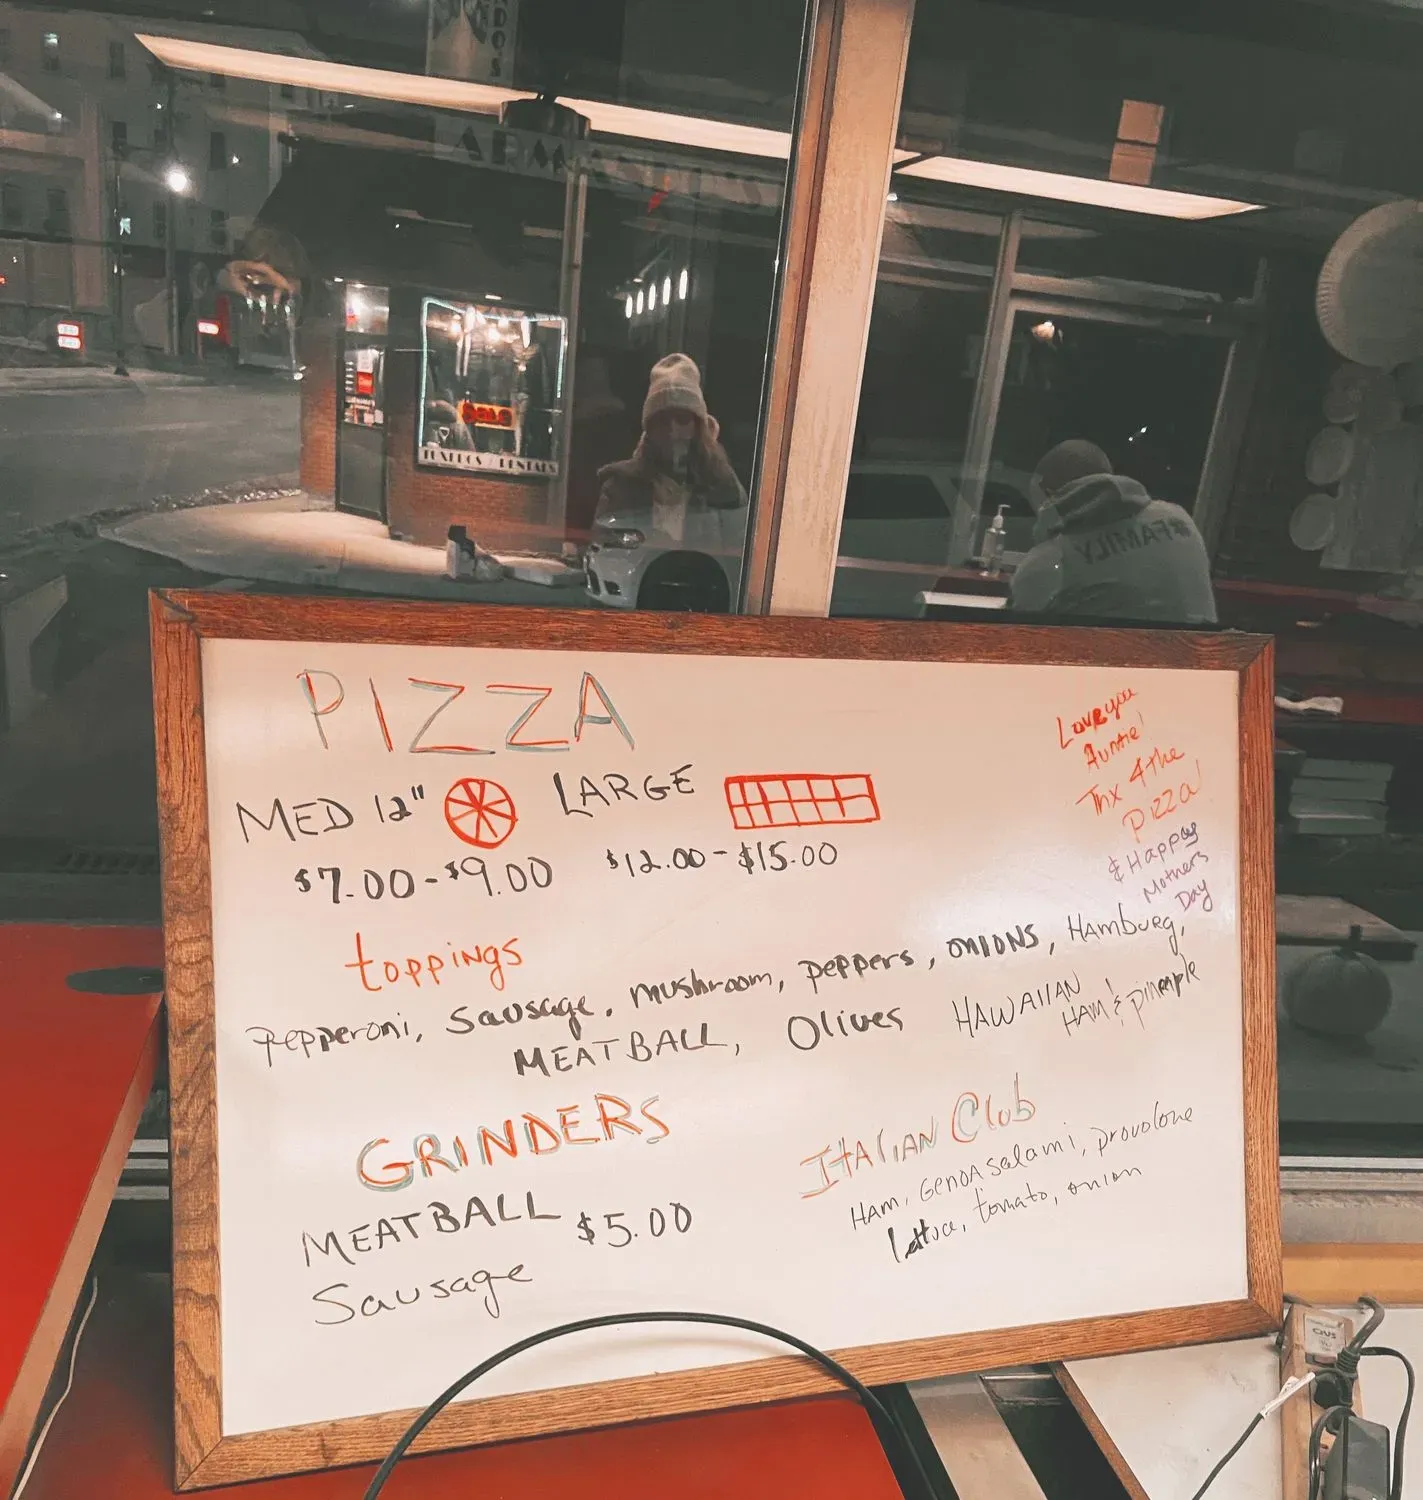 ARMANDO'S
SALE
TUXEDOS / RENTALS
#FAMILY
PIZZA
MED 12" LARGE
$7.00-$9.00 $12.00-$15.00
Love you
Auntie!
Thx 4 the
Pizza!
& Happy
Mothers
Day
toppings
Pepperoni, Sausage, mushroom, peppers, ONIONS, HAMburg,
MEATBALL, Olives HAWAIIAN
HAM & pineapple
GRINDERS
MEATBALL $5.00
Sausage
ITALIAN Club
HAM, GENOA salami, provolone
lettuce, tomato, onion